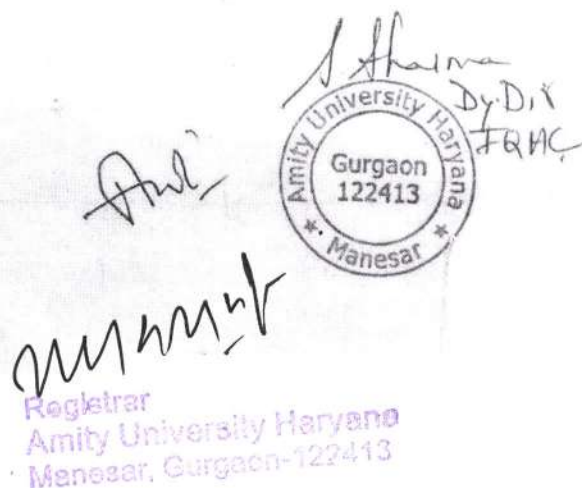 S Sharma
Dy. Dir
IQAC
Amity University Haryana
Gurgaon
122413
* Manesar *
Registrar
Amity University Haryana
Manesar, Gurgaon-122413